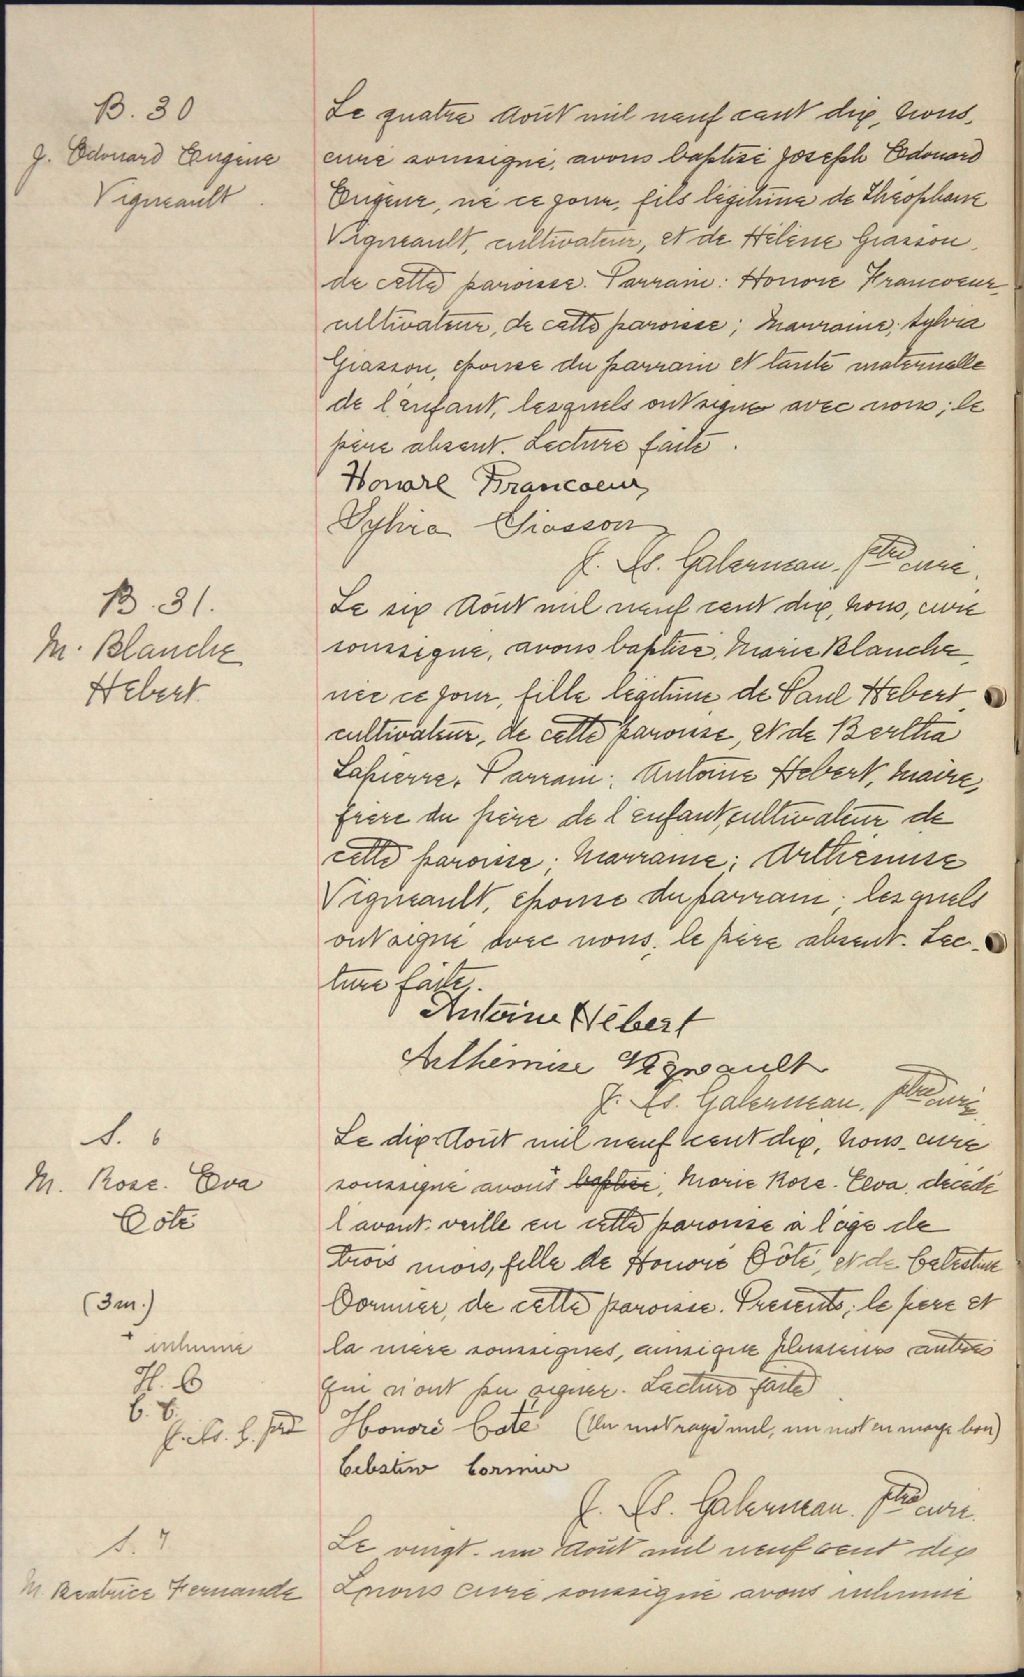 B. 30
J. Edouard Eugène
Vigneault
Le quatre Août mil neuf cent dix, nous,
curé soussigné, avons baptisé Joseph Edouard
Eugène, né ce jour, fils légitime de Théophane
Vigneault, cultivateur, et de Hélène Giasson,
de cette paroisse. Parrain: Honoré Francoeur,
cultivateur, de cette paroisse; Marraine, Sylvia
Giasson, épouse du parrain et tante maternelle
de l'enfant, lesquels ont signé avec nous; le
père absent. Lecture faite.
Honoré Francoeur
Sylvia Giasson
J. Galerneau. ptre curé.
B. 31.
M. Blanche
Hébert
Le six Août mil neuf cent dix, nous, curé
soussigné, avons baptisé, Marie Blanche,
née ce jour, fille légitime de Paul Hébert,
cultivateur, de cette paroisse, et de Bertha
Lapierre. Parrain: Antoine Hébert, Maire,
frère du père de l'enfant, cultivateur de
cette paroisse; Marraine; Arthémise
Vigneault, épouse du parrain; lesquels
ont signé avec nous; le père absent. Lec-
ture faite.
Antoine Hébert
Arthémise Vigneault
J. Galerneau. ptre curé
S. 6
M. Rose. Eva
Côté
(3 m.)
+ inhumé
H. C
C. C.
Le dix Août mil neuf cent dix, nous, curé
soussigné avons + baptisé, Marie Rose. Eva, décédé
l'avant-veille en cette paroisse à l'âge de
trois mois, fille de Honoré Côté, et de Célestine
Cormier, de cette paroisse. Présents; le père et
la mère soussignés, ainsique plusieurs autres
qui n'ont pu signer. Lecture faite
Honoré Coté (Un mot rayé nul, un mot en marge bon)
Celestin Cormier
J. Galerneau. ptre curé.
S. 7
M. Beatrice Fernande
Le vingt-un Août mil neuf cent dix
nous curé soussigné avons inhumé